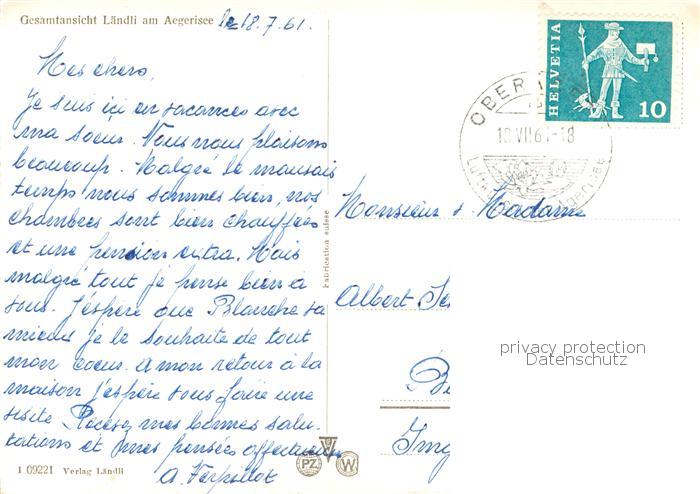 Gesamtansicht Ländli am Aegerisee le 18.7.61.
Mes chers,
Je suis içi en vacances avec
ma soeur. Nous nous plaisons
beaucoup. Malgré le mauvais
temps nous sommes bien, nos
chambres sont bien chauffées
et une pension extra. Mais
malgré tout je pense bien à
vous. J'espère que Blanche va
mieux je le souhaite de tout
mon coeur. A mon retour à la
maison j'espère vous faire une
visite Recevez mes bonnes salu-
tations et mes pensées affectueuses
A.
1 09221 Verlag Ländli
Fabrication suisse
PZ
W
HELVETIA
10
OBER
18.VII.61-18
Monsieur & Madame
Albert
privacy protection
Datenschutz